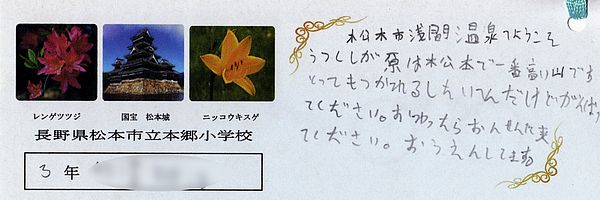 レンゲツツジ 国宝 松本城 ニッコウキスゲ
長野県松本市立本郷小学校
3年
松本市浅間温泉でようこそ
うつくしが原は松本で一番高い山です
とってもつかれるしたいへんだけどがんばっ
てください。おわったらおんせんに来
てください。おうえんしてます